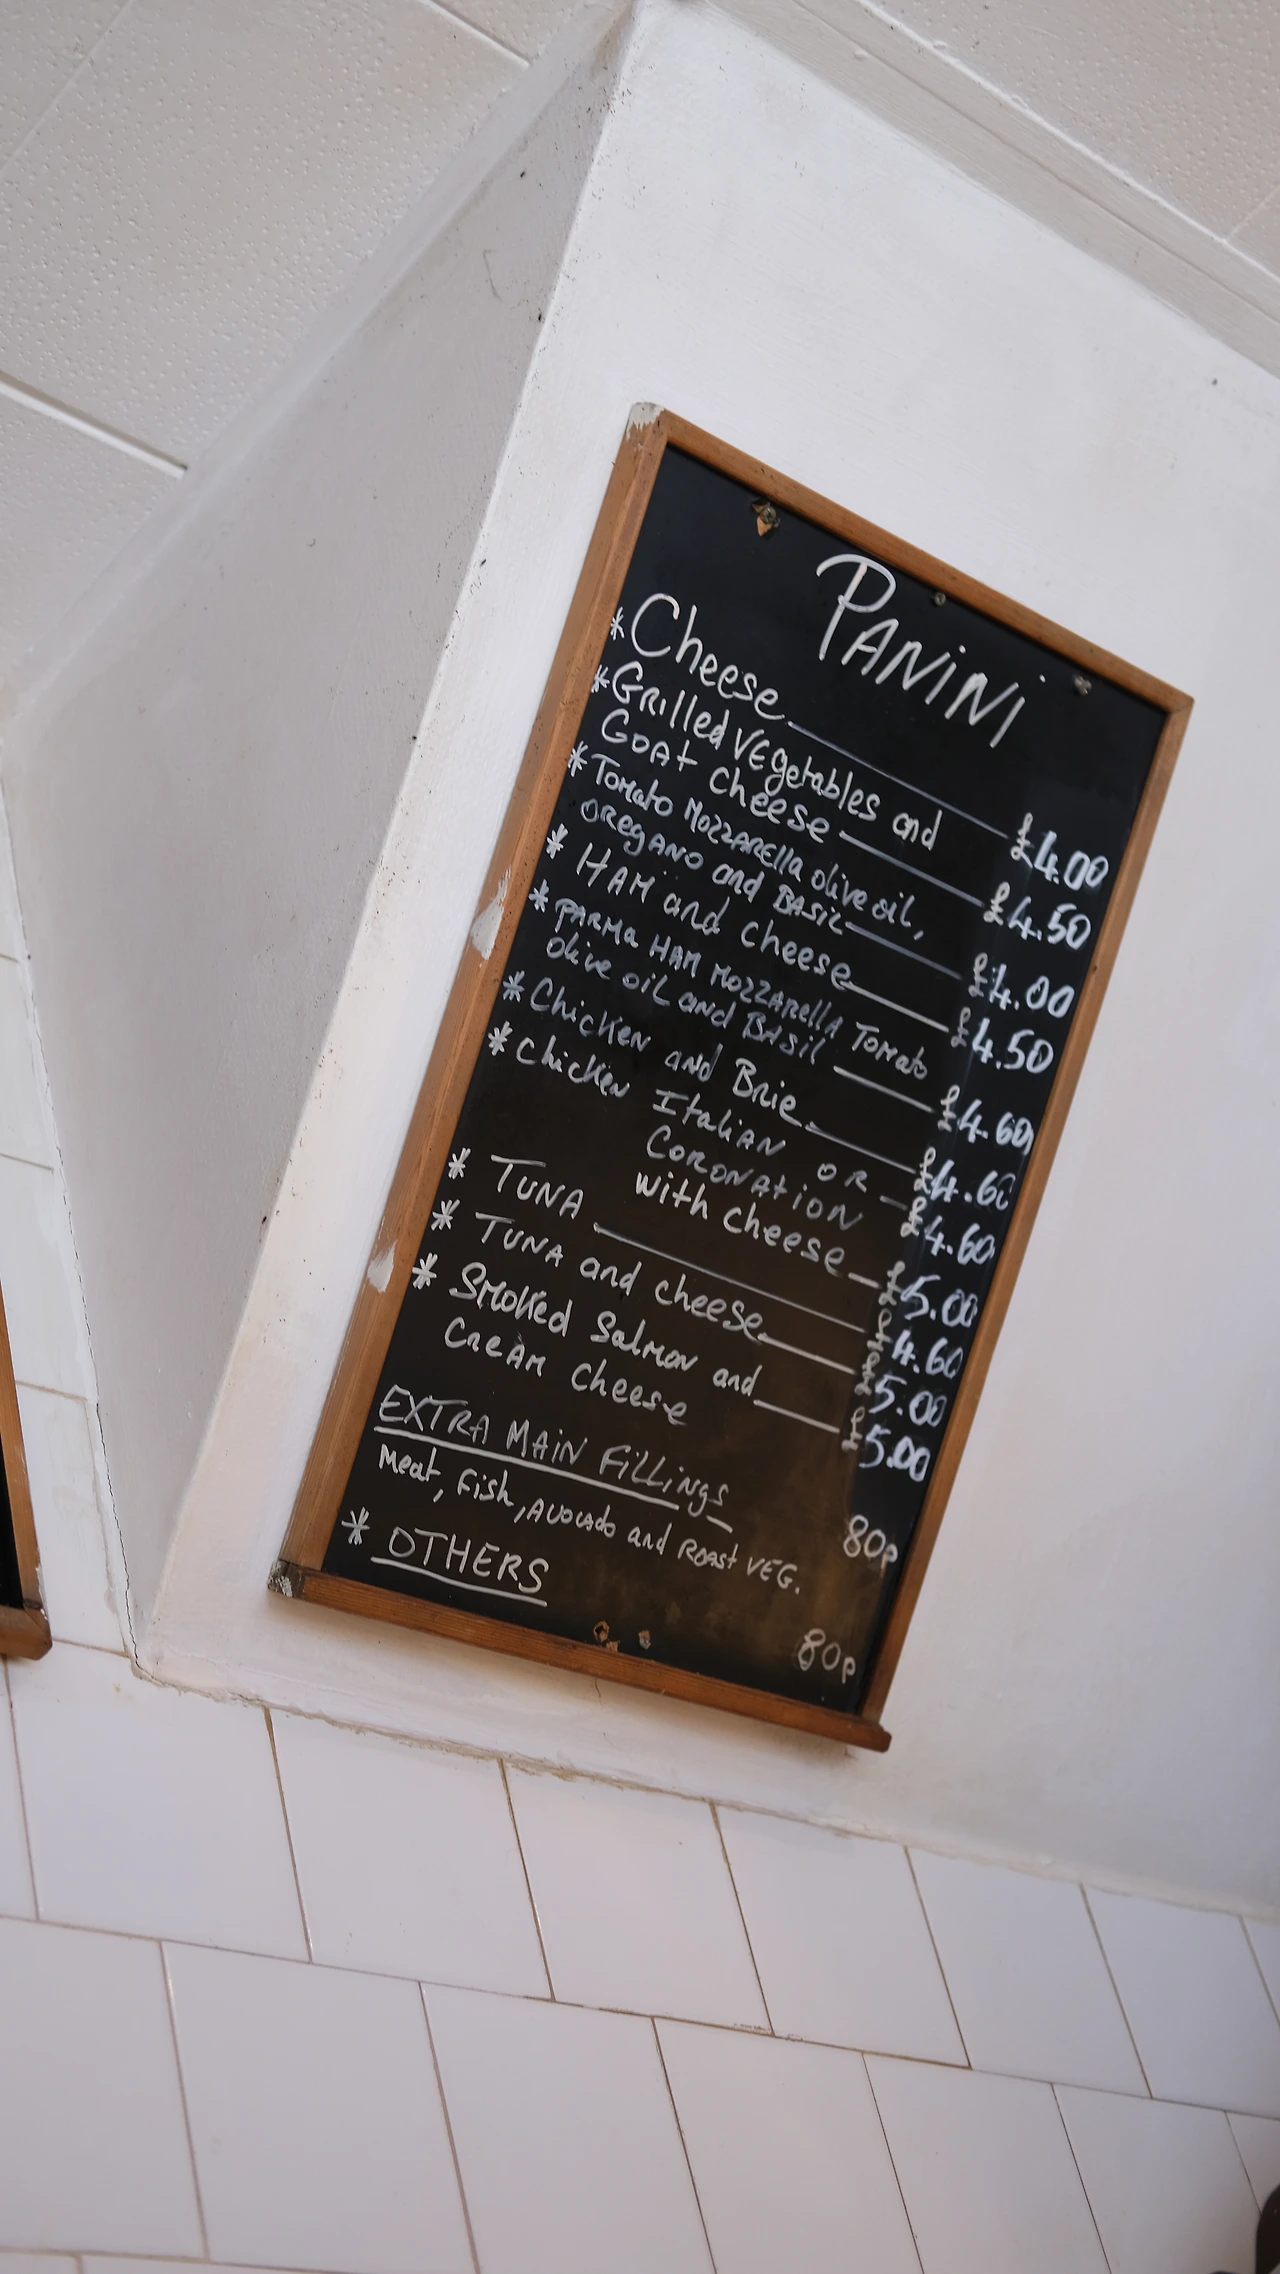 PANINI
* Cheese £4.00
* GRilled VEgetables and
GOAt cheese £4.50
* Tomato MOZZARElla olive oil,
OREgANO and BASiL £4.00
* HAM and cheese £4.50
* PARMA HAM MOZZARellA TOMATO
Olive oil and BASiL £4.60
* ChicKEN and Brie £4.60
* ChicKEN ItaliAN OR £4.60
CORONAtiON
with cheese £5.00
* TUNA £4.60
* TUNA and cheese £5.00
* SMOKed SalmoN and £5.00
CREAM Cheese
EXTRA MAiN FiLLiNgS
Meat, Fish, AVOCADO and ROAST VEG. 80p
* OTHERS 80p